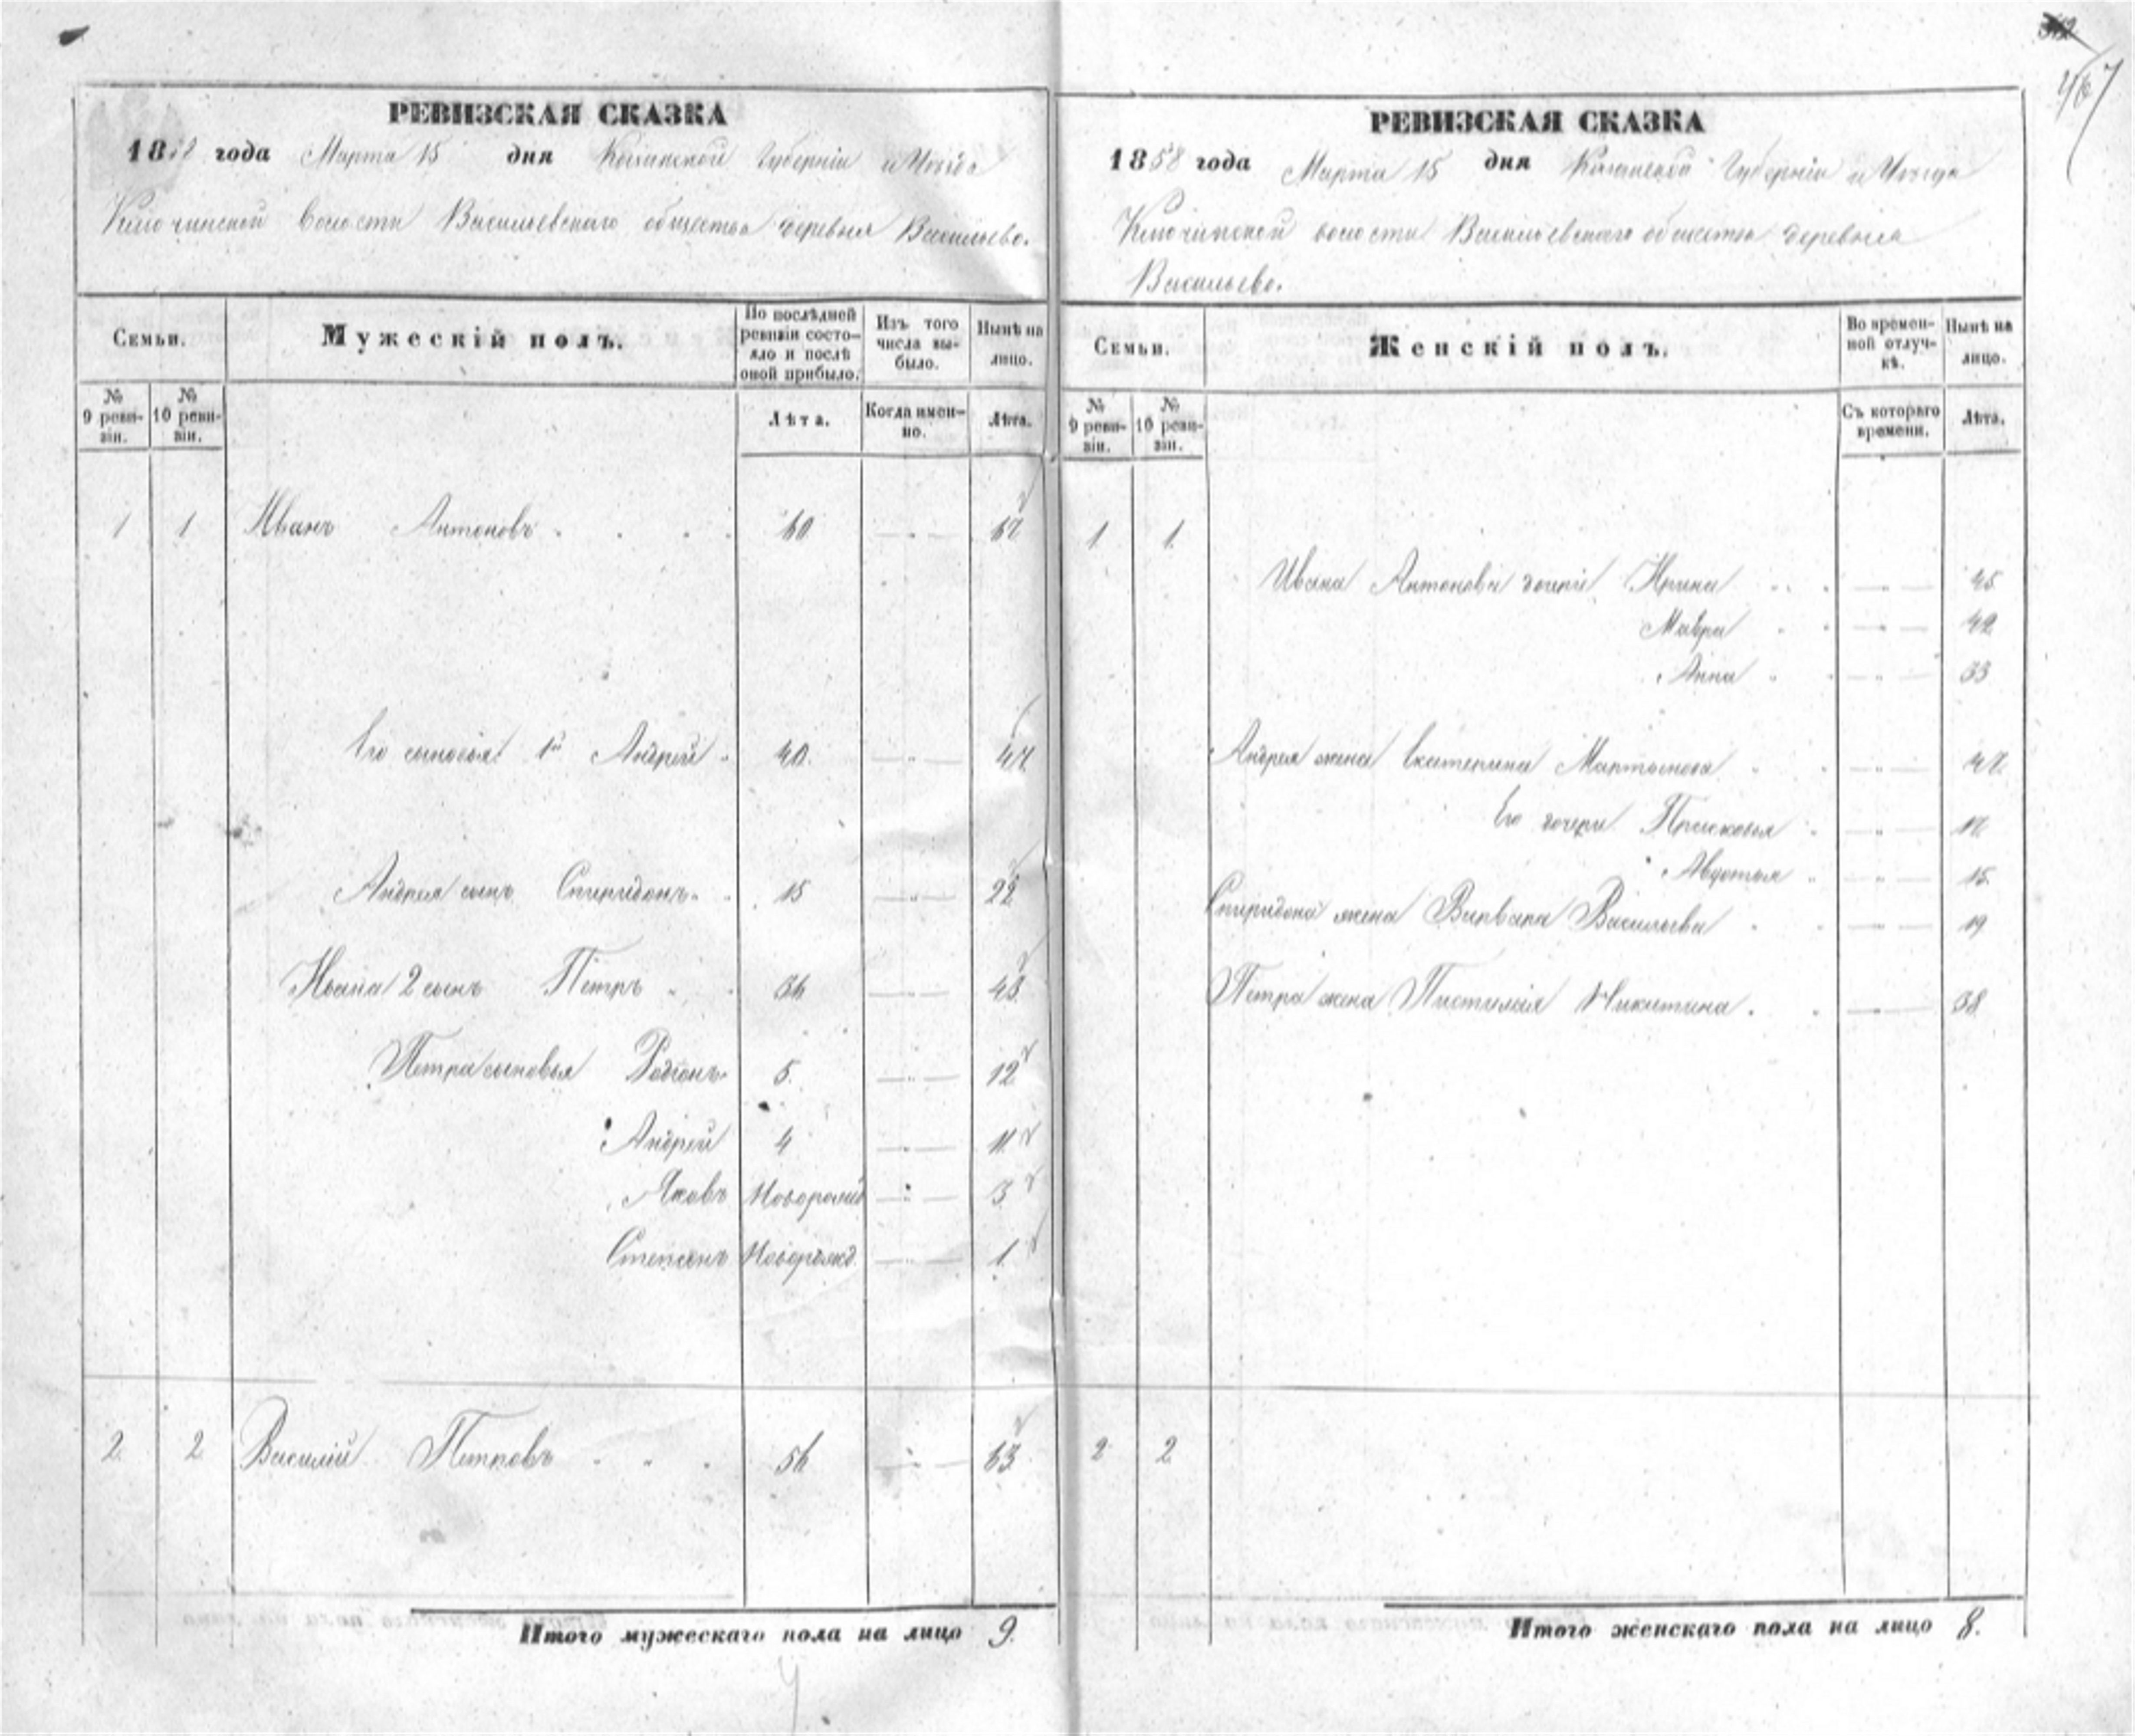 467
РЕВИЗСКАЯ СКАЗКА
1858 года Марта 15 дня Казанской Губерніи и Уѣзда
Ключинской волости Васильевскаго общества деревня Васильево.
Семьи.
Мужескій полъ.
По послѣдней ревизіи состояло и послѣ оной прибыло.
Изъ того числа выбыло.
Нынѣ на лицо.
№ 9 ревизіи.
№ 10 ревизіи.
Лѣта.
Когда именно.
Лѣта.
1 1 Иванъ Антоновъ 60 67
Его сыновья 1й Андрей 40. 47
Андрея сынъ Спиридонъ 15 22
Ивана 2 сынъ Петръ 36 43
Петра сыновья Родіонъ 5. 12
Андрей 4 11
Яковъ Новорожд 3
Степанъ Новорожд 1.
2 2 Василій Петровъ 56 63
Итого мужескаго пола на лицо 9.
РЕВИЗСКАЯ СКАЗКА
1858 года Марта 15 дня Казанской Губерніи и Уѣзда
Ключинской волости Васильевскаго общества деревня
Васильево.
Семьи.
Женскій полъ.
Во временной отлучкѣ.
Нынѣ на лицо.
№ 9 ревизіи.
№ 10 ревизіи.
Съ котораго времени.
Лѣта.
1. 1.
Ивана Антонова дочери Ирина 45
Мавра 42
Анна 33
Андрея жена Екатерина Мартынова 47
Его дочери Прасковья 17
Авдотья 15
Спиридона жена Варвара Васильева 19
Петра жена Пистимія Никитина 38
2 2
Итого женскаго пола на лицо 8.